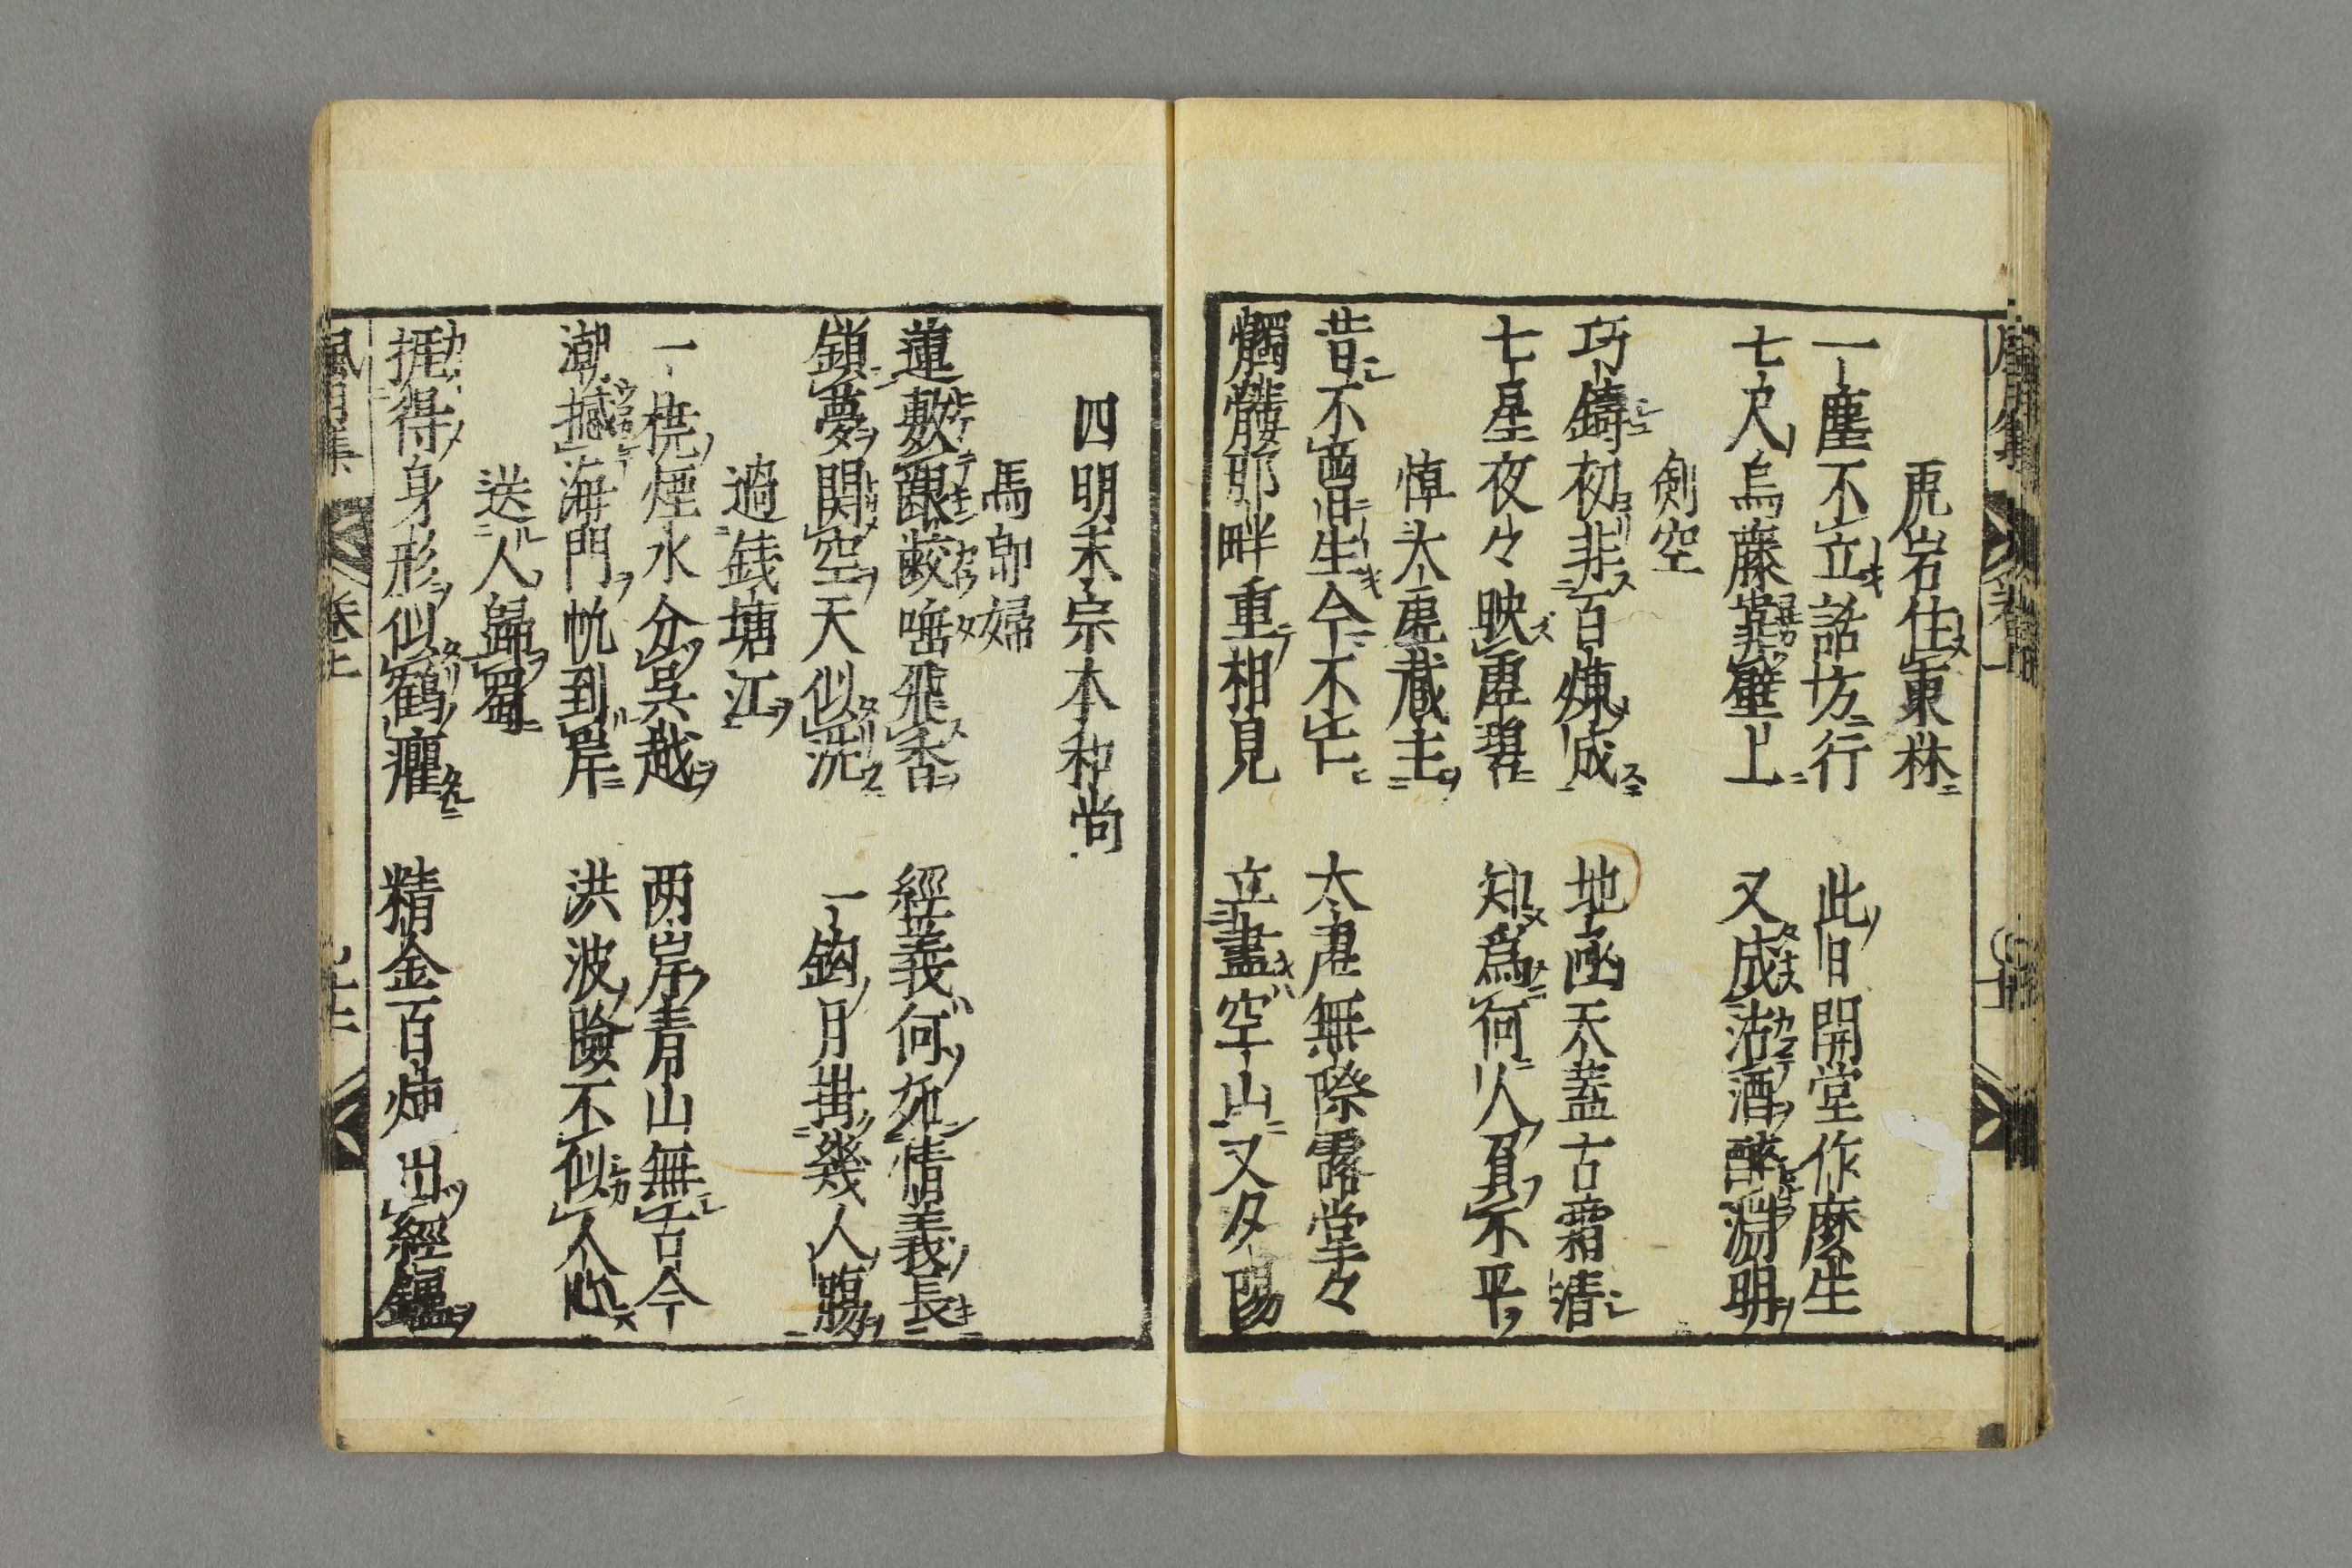 虎岩住東林
一塵不立話坊行　此日開堂作麼生
七尺烏藤靠壁上　又成沽酒醉淵明
劍空
巧鑄初非百煉成　地函天蓋古霜清
七星夜々映虛碧　知爲何人有不平
悼太虛藏主
昔不曾生今不亡　太虛無際露堂々
髑髏那畔重相見　立盡空山又夕陽
四明末宗本和尚
馬郎婦
蓮敷齦齩唾飛香　經義何如情義長
鎖夢閑空天似洗　一鈎月掛幾人腸
過錢塘江
一橈煙水分吳越　两岸青山無古今
潮撼海門帆到岸　洪波險不似人心
送人歸蜀
捱得身形似鶴癯　精金百煉出經爐
卷上